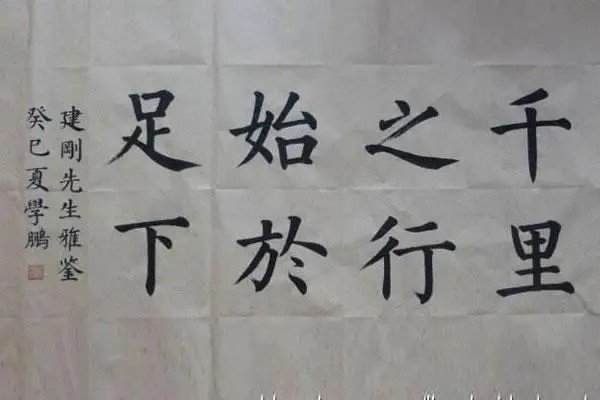 千里
之行
始於
足下
建剛先生雅鉴
癸巳夏學鵬